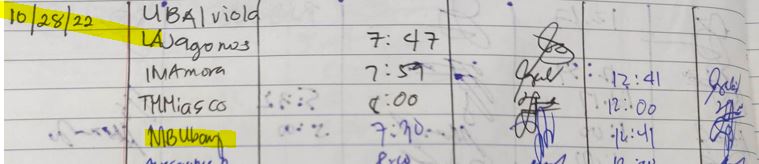 10/28/22 UBAlviola
LAJagomos 7:47
IMAmora 7:59 12:41
THMiasco 8:00 12:00
MBUbay 7:30 12:41